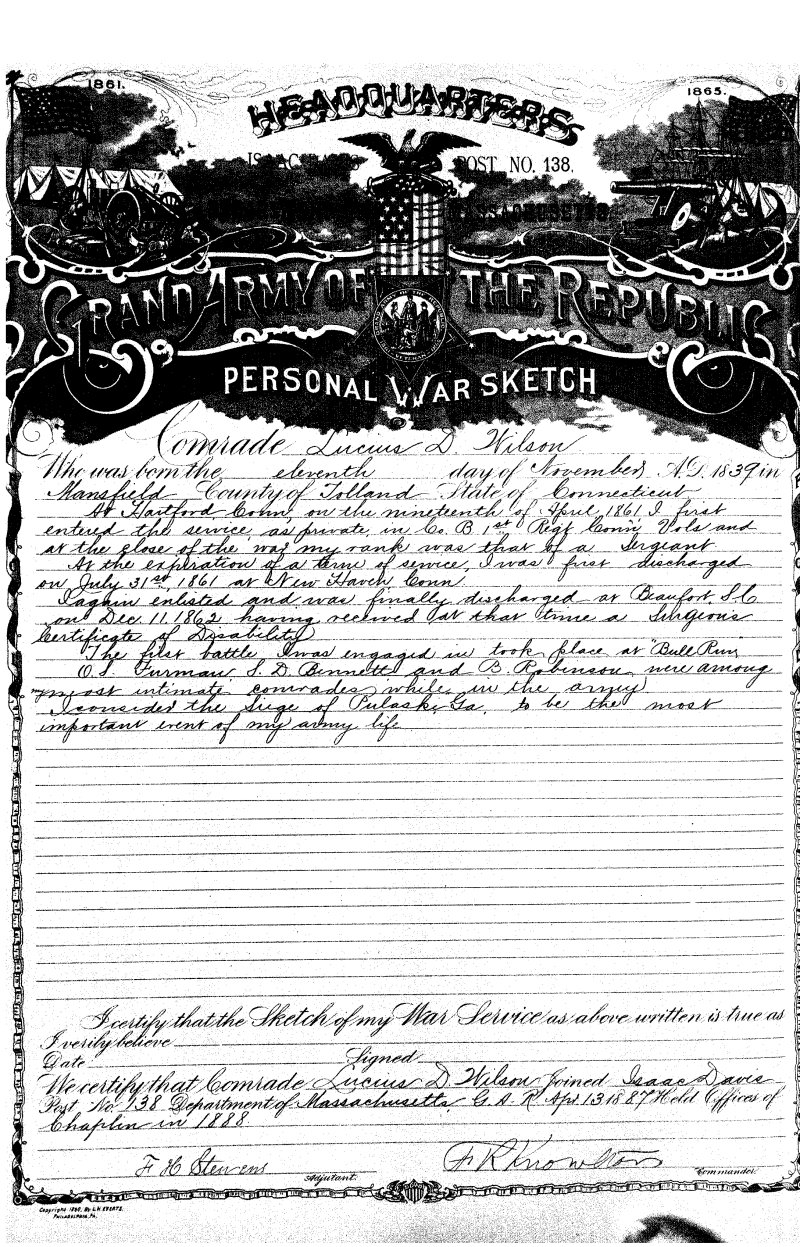 1861.
1865.
HEADQUARTERS
ISAAC DAVIS POST NO. 138.
MASSACHUSETTS
GRAND ARMY OF THE REPUBLIC
PERSONAL WAR SKETCH
Comrade Lucius D. Wilson
Who was born the eleventh day of November A.D. 1839 in
Mansfield County of Tolland State of Connecticut
At Hartford Conn, on the nineteenth of April, 1861 I first
entered the service, as private, in Co. B 1st Regt Conn, Vols and
at the close of the war my rank was that of a Sergeant
At the expiration of a term of service, I was first discharged
on July 31st, 1861 at New Haven Conn.
I again enlisted and was finally discharged at Beaufort S.C
on Dec, 11, 1862 having received at that time a Surgeons
Certificate of Disability
The first battle I was engaged in took place at "Bull Run,
O.S. Furman, S. D. Bennett and B. Robinson were among
my most intimate comrades while in the army
I consider the Siege of Pulaski Ga, to be the most
important event of my army life
I certify that the Sketch of my War Service as above written is true as
I verily believe
Date Signed
We certify that Comrade Lucius D. Wilson Joined Isaac Davis
Post No. 138 Department of Massachusetts, G. A. R. Apr. 13 1887 Held Offices of
Chaplin in 1888.
F H Stevens Adjutant. F R Knowlton Commander
Copyright 1890, By L.H. EVERTS.
PHILADELPHIA, PA.